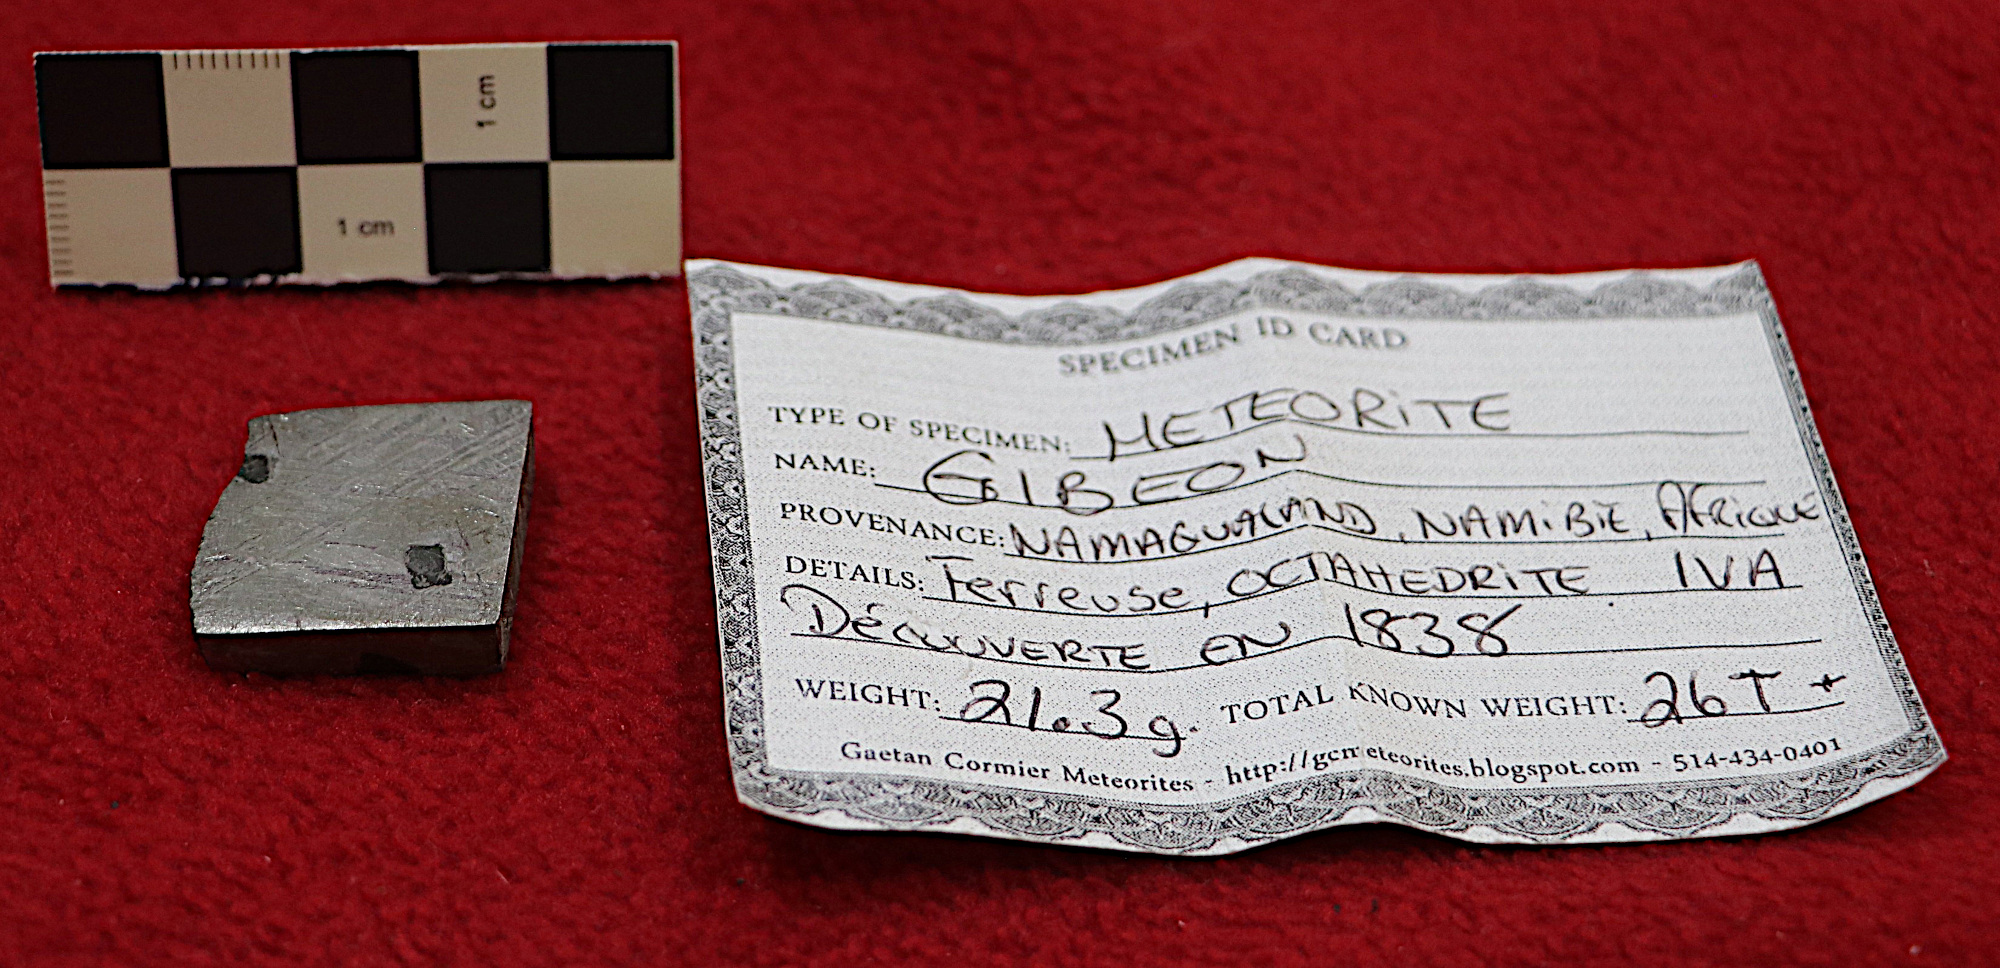 1 cm
1 cm
SPECIMEN ID CARD
TYPE OF SPECIMEN: METEORITE
NAME: GIBEON
PROVENANCE: NAMAGUALAND, NAMIBIE, AFRIQUE
DETAILS: Ferreuse, OCTAHEDRITE IVA
DÉCOUVERTE EN 1838
WEIGHT: 21.3 g. TOTAL KNOWN WEIGHT: 26T +
Gaetan Cormier Meteorites - http://gcmeteorites.blogspot.com - 514-434-0401